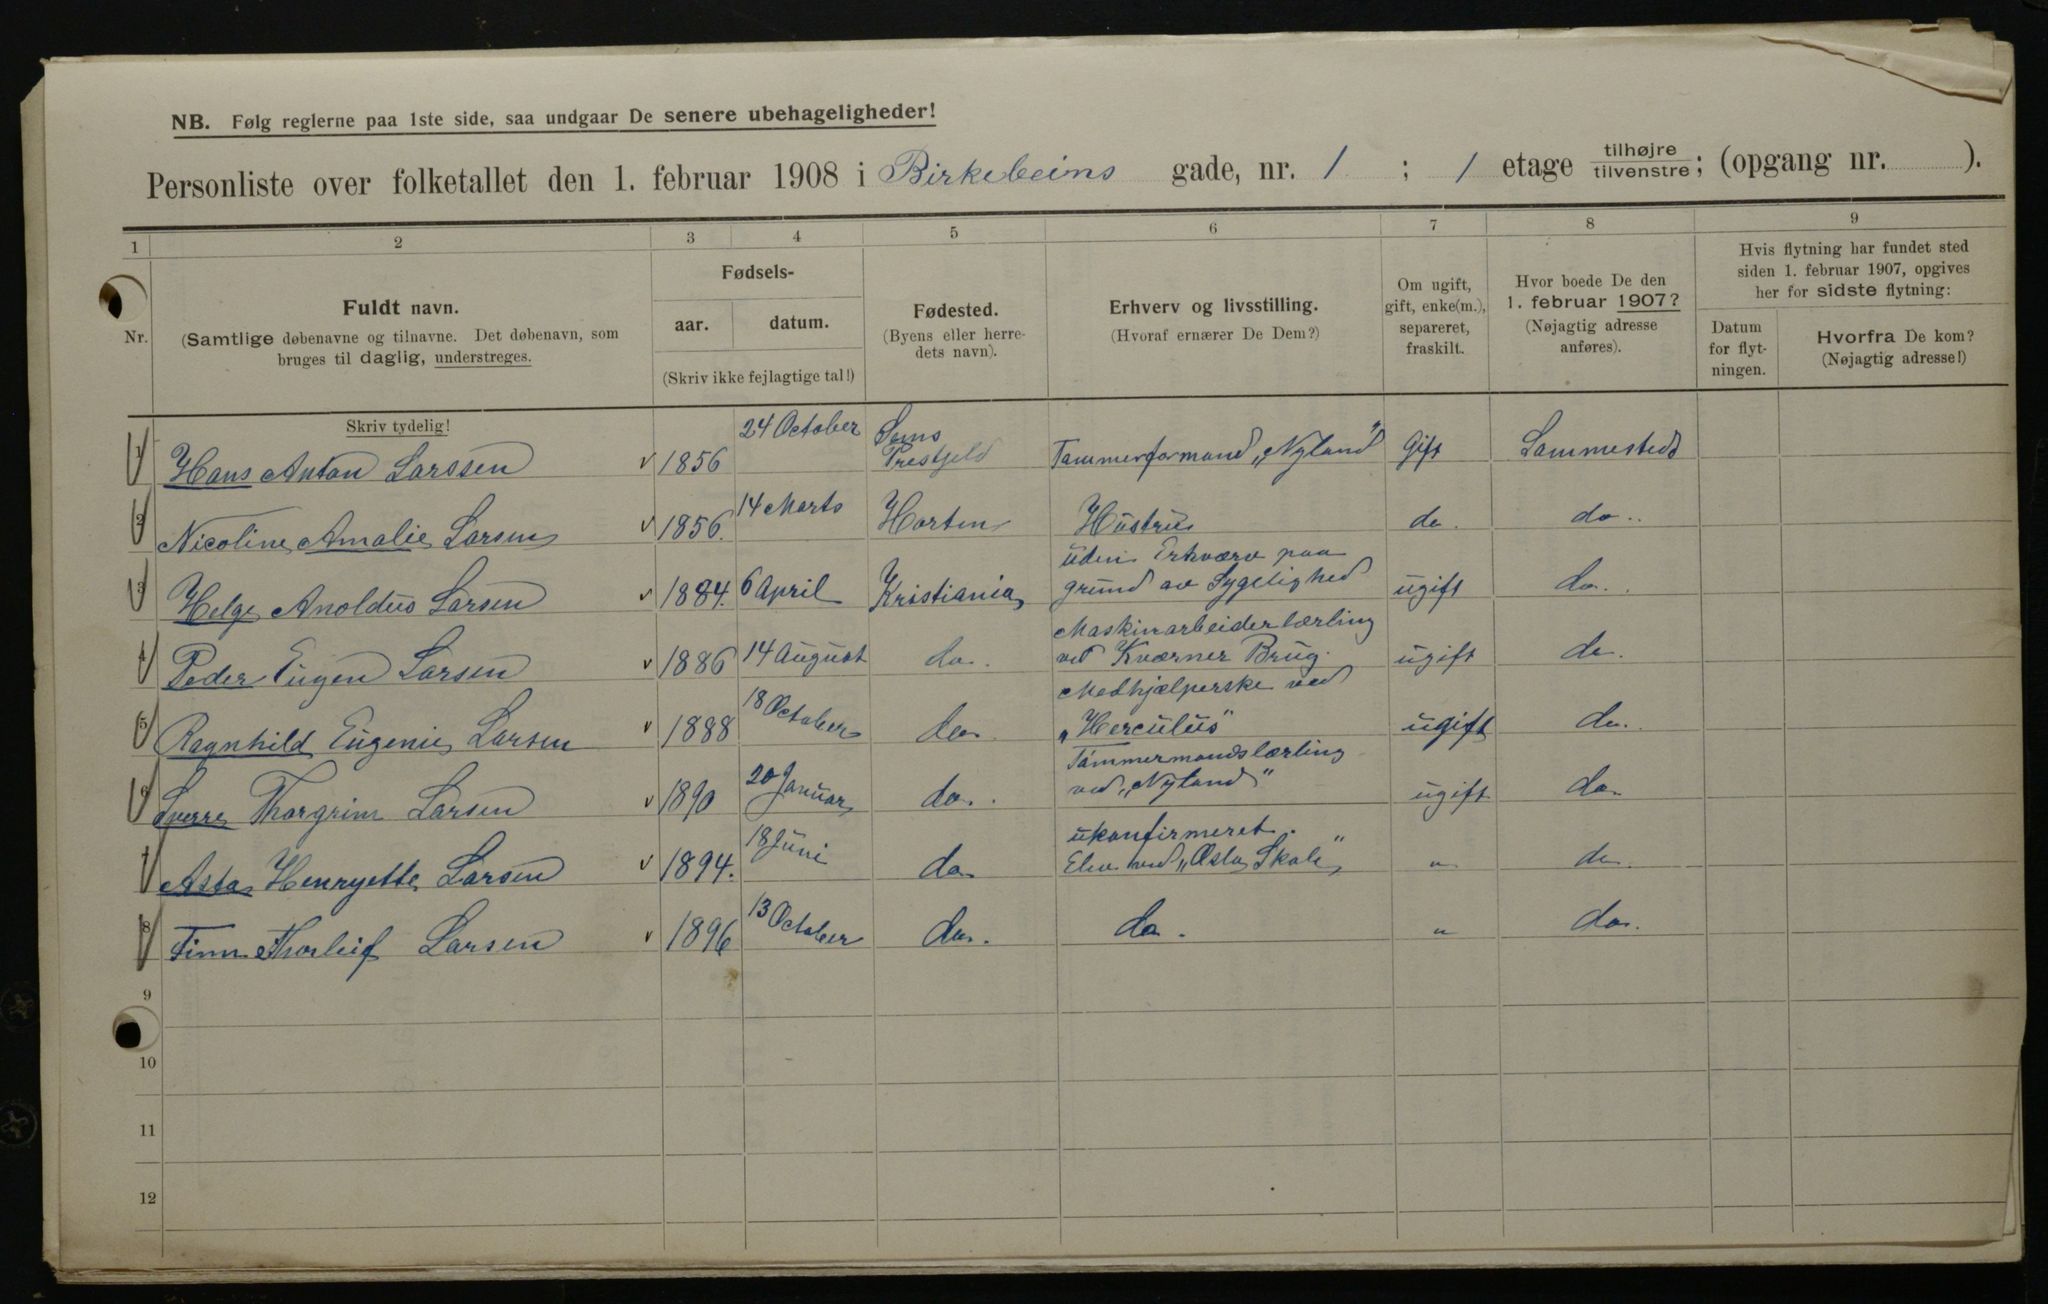 NB. Følg reglerne paa 1ste side, saa undgaar De senere ubehageligheder!
Personliste over folketallet den 1. februar 1908 i Birkebeins gade, nr. 1 ; 1 etage tilhøjre tilvenstre; (opgang nr. ).
1 2 3 4 5 6 7 8 9
Nr.
Fuldt navn.
(Samtlige døbenavne og tilnavne. Det døbenavn, som
bruges til daglig, understreges.
Skriv tydelig!
Fødsels-
aar. datum.
(Skriv ikke fejlagtige tal!)
Fødested.
(Byens eller herre-
dets navn).
Erhverv og livsstilling.
(Hvoraf ernærer De Dem?)
Om ugift,
gift, enke(m.),
separeret,
fraskilt.
Hvor boede De den
1. februar 1907?
(Nøjagtig adresse
anføres).
Hvis flytning har fundet sted
siden 1. februar 1907, opgives
her for sidste flytning:
Datum
for flyt-
ningen.
Hvorfra De kom?
(Nøjagtig adresse!)
1 Hans Anton Larssen 1856 24 October Sems Prestgeld Tømmerformand „Nyland" Gift Sammesteds
2 Nicoline Amalie Larsen 1856. 14 Marts Horten Hustru do. do..
3 Helge Anoldus Larsen 1884. 6 April Kristiania uden Erhværv paa
grund av Sygelighed ugift do.
4 Peder Eugen Larsen 1886 14 August do. Maskinarbeiderlærling
ved Kværner Brug. ugift do.
5 Ragnhild Eugenie Larsen 1888 18 October do. Medhjælperske ved
„Herculus" ugift do.
6 Sverre Thorgrim Larsen 1890 20 Januar do. Tømmermandslærling
ved „Nyland" ugift do.
7 Asta Henryette Larsen 1894. 18 Juni do. ukonfirmeret.
Elev ved „Oslo Skole" " do.
8 Finn Thorleif Larsen 1896 13 October do. do. " do.
9
10
11
12